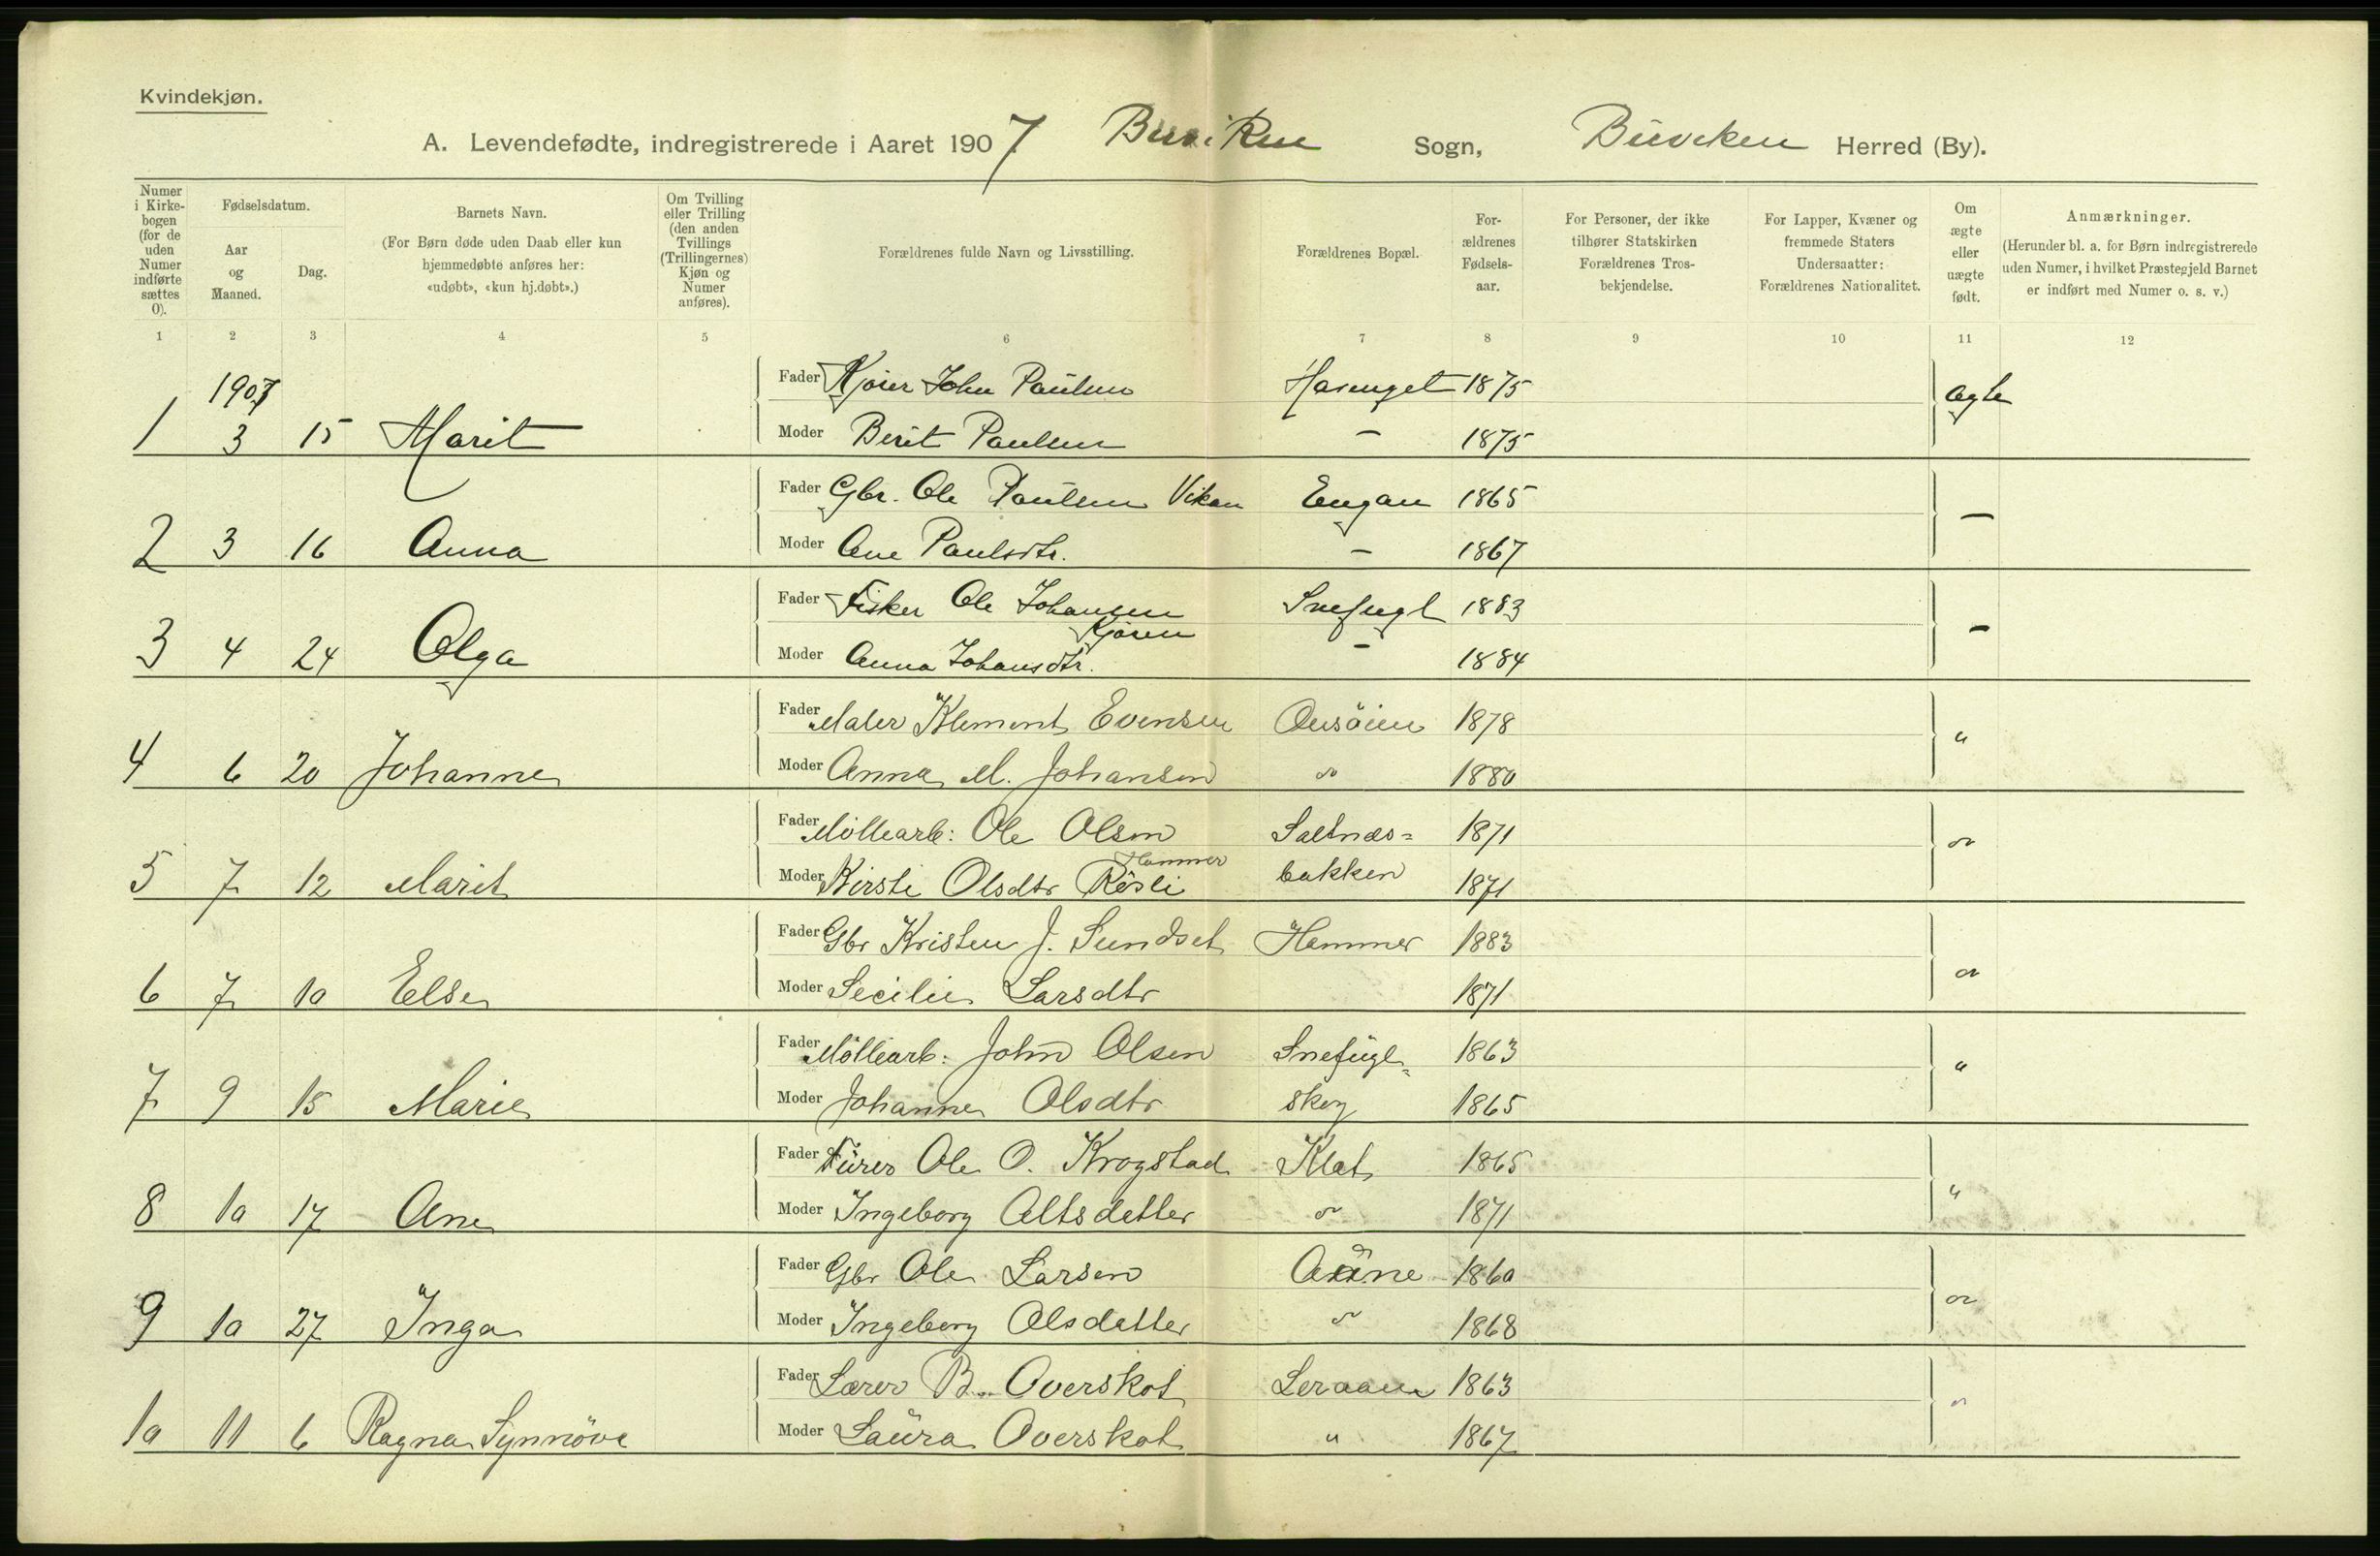 Kvindekjøn.
A. Levendefødte, indregistrerede i Aaret 1907 Buviken Sogn, Buviken Herred (By).
Numer i Kirkebogen (for de uden Numer indførte sættes 0).
Fødselsdatum.
Aar og Maaned.
Dag.
Barnets Navn.
(For Børn døde uden Daab eller kun hjemmedøbte anføres her: «udøbt», «kun hj.døbt».)
Om Tvilling eller Trilling (den anden Tvillings (Trillingernes) Kjøn og Numer anføres).
Forældrenes fulde Navn og Livsstilling.
Forældrenes Bopæl.
For-ældrenes Fødsels-aar.
For Personer, der ikke tilhører Statskirken Forældrenes Tros-bekjendelse.
For Lapper, Kvæner og fremmede Staters Undersaatter: Forældrenes Nationalitet.
Om ægte eller uægte født.
Anmærkninger.
(Herunder bl. a. for Børn indregistrerede uden Numer, i hvilket Præstegjeld Barnet er indført med Numer o. s. v.)
1 2 3 4 5 6 7 8 9 10 11 12
1907
Fader John Paulsen 1875 ægte
1 3 15 Marit Moder Berit Paulsen – 1875
Fader Gbr. Ole Paulsen Vikan Engan 1865 –
2 3 16 Anna Moder Ane Paulsdtr. – 1867
Fader Fisker Ole Johansen Snefugl 1883
Kjøren –
3 4 24 Olga Moder Anna Johansdtr. – 1884
Fader Maler Klement Evensen Onsöien 1878 "
4 6 20 Johanne Moder Anna M. Johansen " 1880
Fader Möllearb: Ole Olsen Saltnæs= 1871 "
Hammer
5 7 12 Marit Moder Kirsti Olsdtr Rösli bakken 1871
Fader Gbr Kristen J. Sundset Hammer 1883 "
6 7 10 Else Moder Secilie Larsdtr 1871
Fader Möllearb: John Olsen Snefugl= 1863 "
7 9 15 Marie Moder Johanne Olsdtr skog 1865
Fader Ole O. Krogstad Klet 1865 "
8 10 17 Ane Moder Ingeborg Altsdatter " 1871
Fader Gbr Ole Larsen Aune 1860 "
9 10 27 Inga Moder Ingeborg Olsdatter " 1868
Fader Lærer B. Overskot Leraaen 1863 "
10 11 6 Ragna Synnöve Moder Laura Overskot " 1867